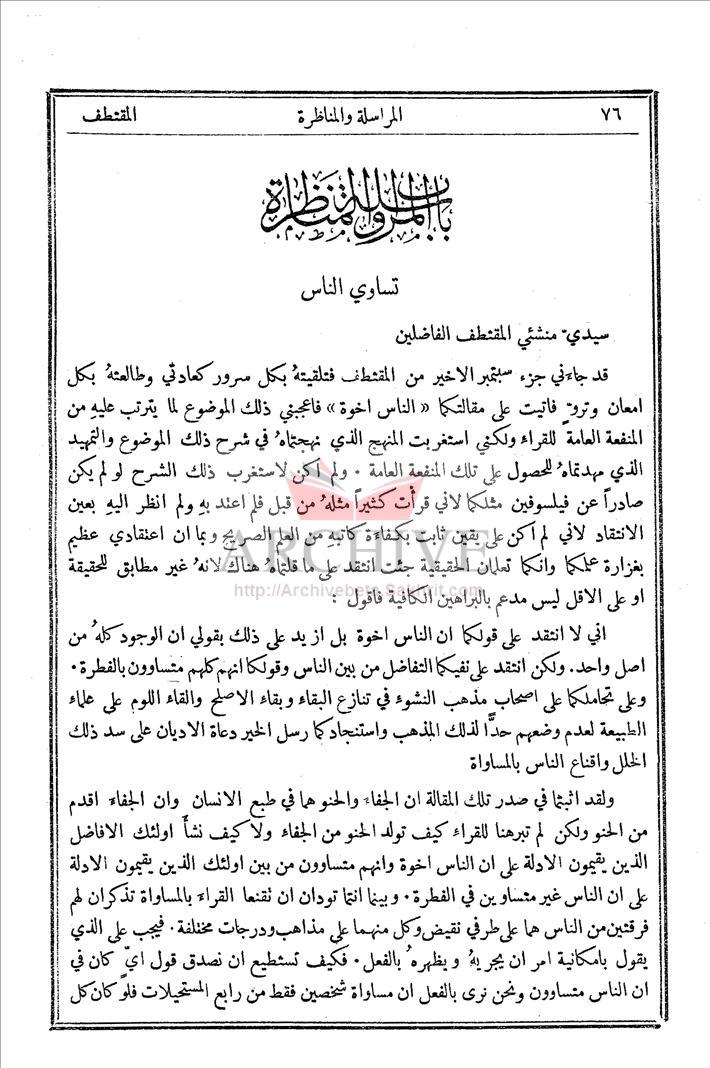 ٧٦ المراسلة والمناظرة المقتطف
باب المراسلة والمناظرة
تساوي الناس
سيديّ منشئي المقتطف الفاضلين
قد جاءني جزء سبتمبر الاخير من المقتطف فتلقيتهُ بكل سرور كعادتي وطالعتهُ بكل
امعان وتروّ فاتيت على مقالتكما «الناس اخوة» فاعجبني ذلك الموضوع لما يترتب عليهِ من
المنفعة العامة للقراء ولكني استغربت المنهج الذي نهجتماهُ في شرح ذلك الموضوع والتمهيد
الذي مهدتماهُ للحصول على تلك المنفعة العامة . ولم اكن لاستغرب ذلك الشرح لو لم يكن
صادراً عن فيلسوفين مثلكما لاني قرأت كثيراً مثلهُ من قبل فلم اعتد بهِ ولم انظر اليهِ بعين
الانتقاد لاني لم اكن على يقين ثابت بكفاءة كاتبهِ من العلم الصريح وبما ان اعتقادي عظيم
بغزارة علمكما وانكما تعلمان الحقيقية جئت انتقد على ما قلتماهُ هناك لانهُ غير مطابق للحقيقة
او على الاقل ليس مدعم بالبراهين الكافية فاقول :
اني لا انتقد على قولكما ان الناس اخوة بل ازيد على ذلك بقولي ان الوجود كلهُ من
اصل واحد. ولكن انتقد على نفيكما التفاضل من بين الناس وقولكما انهم كلهم متساوون بالفطرة .
وعلى تحاملكما على اصحاب مذهب النشوء في تنازع البقاء وبقاء الاصلح والقاء اللوم على علماء
الطبيعة لعدم وضعهم حدًّا لذلك المذهب واستنجادكما رسل الخير دعاة الاديان على سد ذلك
الخلل واقناع الناس بالمساواة
ولقد اثبتما في صدر تلك المقالة ان الجفاء والحنو هما في طبع الانسان وان الجفاء اقدم
من الحنو ولكن لم تبرهنا للقراء كيف تولد الحنو من الجفاء ولا كيف نشأ اولئك الافاضل
الذين يقيمون الادلة على ان الناس اخوة وانهم متساوون من بين اولئك الذين يقيمون الادلة
على ان الناس غير متساوين في الفطرة . وبينما انتما تودان ان تقنعا القراء بالمساواة تذكران لهم
فرقتين من الناس هما على طرفي نقيض وكل منهما على مذاهب ودرجات مختلفة . فيجب على الذي
يقول بامكانية امر ان يجربهُ ويظهرهُ بالفعل . فكيف تستطيع ان نصدق قول ايّ كان في
ان الناس متساوون ونحن نرى بالفعل ان مساواة شخصين فقط من رابع المستحيلات فلو كان كل
ARCHIVE
http://Archivebeta.Sakhrit.com